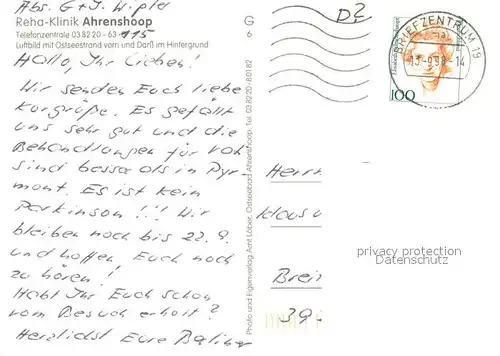 Abs. G + J. Wipler
Reha-Klinik Ahrenshoop
Telefonzentrale 038220-63
115
Luftbild mit Ostseestrand vorn und Darß im Hintergrund
Hallo, Ihr Lieben!
Wir senden Euch liebe
Kurgrüße. Es gefällt
uns sehr gut und die
Behandlungen für
sind besser als in Pyr-
mont. Es ist kein
Parkinson!!! Wir
bleiben noch bis 22.9.
und hoffen Euch noch
zu hören!
Habt Ihr Euch schon
vom Besuch erholt?
Herzlichst Eure Berliner
G
6
Photo und Eigenverlag Arnt Löber, Ostseebad Ahrenshoop, Tel. 038220-80182
BRIEFZENTRUM 19
13.-9.98-14
100
Herrn
Klaus
privacy protection
Dalmasso
Brei
39